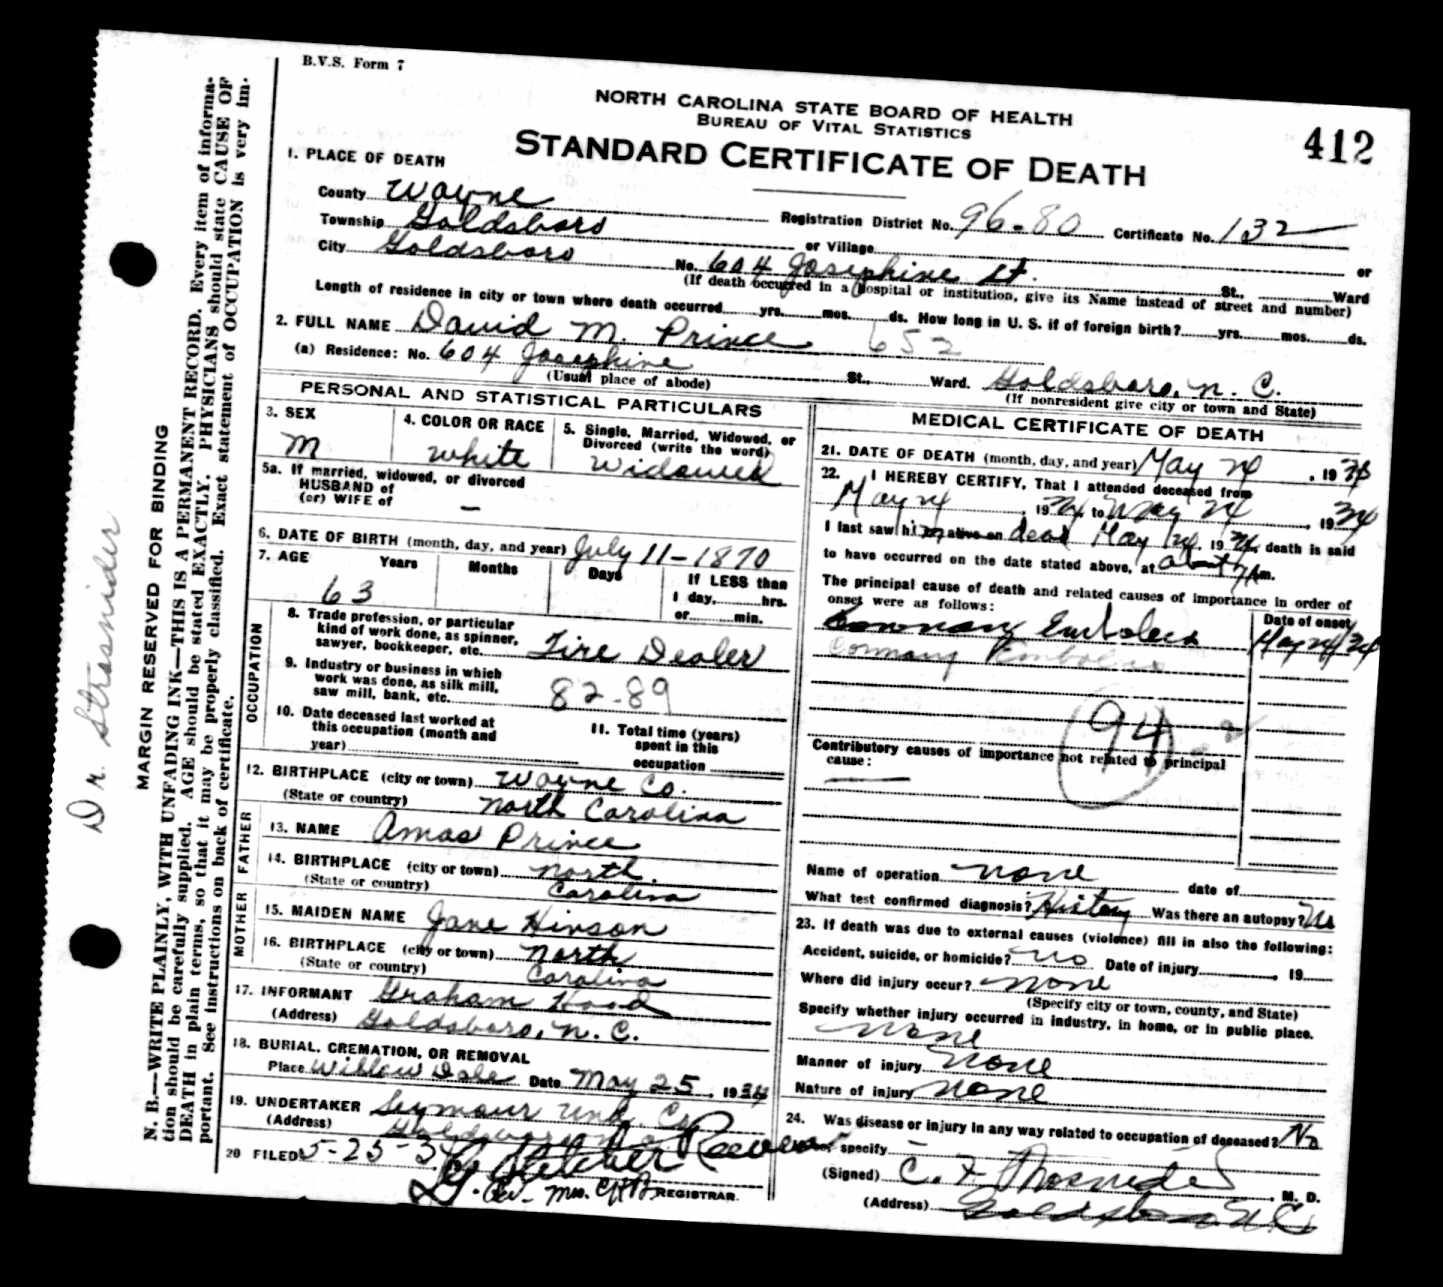 B.V.S. Form 7
NORTH CAROLINA STATE BOARD OF HEALTH
BUREAU OF VITAL STATISTICS
STANDARD CERTIFICATE OF DEATH
412
1. PLACE OF DEATH
County Wayne
Registration District No. 96-80 Certificate No. 132
Township Goldsboro
or Village
or
City Goldsboro No. 604 Josephine St. St., Ward
(If death occurred in a hospital or institution, give its Name instead of street and number)
Length of residence in city or town where death occurred yrs. mos. ds. How long in U. S. if of foreign birth? yrs. mos. ds.
2. FULL NAME David M. Prince 652
(a) Residence: No. 604 Josephine St., Ward. Goldsboro, N. C.
(Usual place of abode) (If nonresident give city or town and State)
PERSONAL AND STATISTICAL PARTICULARS
3. SEX
M
4. COLOR OR RACE
White
5. Single, Married, Widowed, or
Divorced (write the word)
Widowed
5a. If married, widowed, or divorced
HUSBAND of
(or) WIFE of —
6. DATE OF BIRTH (month, day, and year) July 11-1870
7. AGE Years Months Days If LESS than
1 day, hrs.
or min.
63
OCCUPATION
8. Trade profession, or particular
kind of work done, as spinner,
sawyer, bookkeeper, etc. Tire Dealer
9. Industry or business in which
work was done, as silk mill,
saw mill, bank, etc. 82-89
10. Date deceased last worked at
this occupation (month and
year)
11. Total time (years)
spent in this
occupation
12. BIRTHPLACE (city or town) Wayne Co.
(State or country) North Carolina
FATHER
13. NAME Amos Prince
14. BIRTHPLACE (city or town) North
(State or country) Carolina
MOTHER
15. MAIDEN NAME Jane Hinson
16. BIRTHPLACE (city or town) North
(State or country) Carolina
17. INFORMANT Graham Hood
(Address) Goldsboro, N. C.
18. BURIAL, CREMATION, OR REMOVAL
Place Willow Dale Date May 25, 1934
19. UNDERTAKER Seymour Und. Co.
(Address)
20 FILED 5-25-34
REGISTRAR.
MEDICAL CERTIFICATE OF DEATH
21. DATE OF DEATH (month, day, and year) May 24, 1934
22. I HEREBY CERTIFY, That I attended deceased from
May 24, 1934, to May 24, 1934
I last saw him alive on dead May 24, 1934, death is said
to have occurred on the date stated above, at about 7 A m.
The principal cause of death and related causes of importance in order of
onset were as follows: Date of onset
Coronary Embolus May 24/34
Coronary Embolus
94
Contributory causes of importance not related to principal
cause:
Name of operation none date of
What test confirmed diagnosis? History Was there an autopsy? No
23. If death was due to external causes (violence) fill in also the following:
Accident, suicide, or homicide? no Date of injury , 19
Where did injury occur? none
(Specify city or town, county, and State)
Specify whether injury occurred in industry, in home, or in public place.
none
Manner of injury none
Nature of injury none
24. Was disease or injury in any way related to occupation of deceased? No
specify —
(Signed) C. F. , M. D.
(Address) Goldsboro N C
MARGIN RESERVED FOR BINDING
N. B.—WRITE PLAINLY, WITH UNFADING INK—THIS IS A PERMANENT RECORD. Every item of informa-
tion should be carefully supplied. AGE should be stated EXACTLY. PHYSICIANS should state CAUSE OF
DEATH in plain terms, so that it may be properly classified. Exact statement of OCCUPATION is very im-
portant. See instructions on back of certificate.
Dr. Strasnider